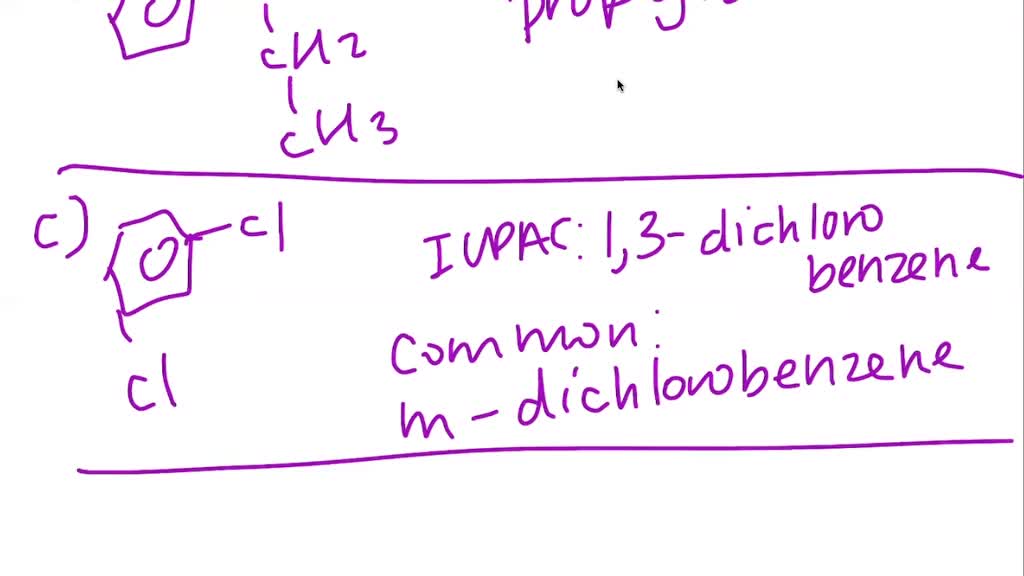 CH2
CH3
c)
Cl
IUPAC: 1,3-dichloro
benzene
common:
m-dichlorobenzene
Cl